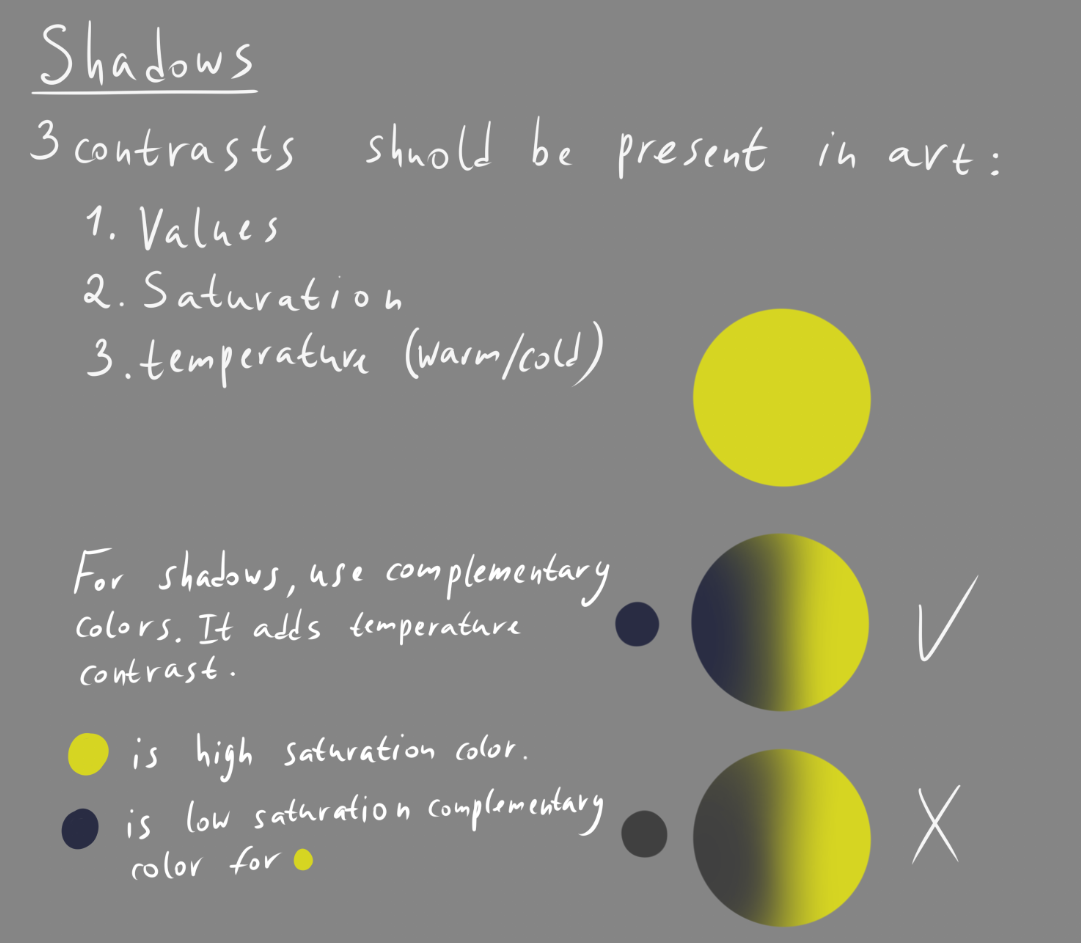 Shadows
3 contrasts shuold be present in art:
1. Values
2. Saturation
3. temperature (warm/cold)
For shadows, use complementary
colors. It adds temperature
contrast.
is high saturation color.
is low saturation complementary
color for